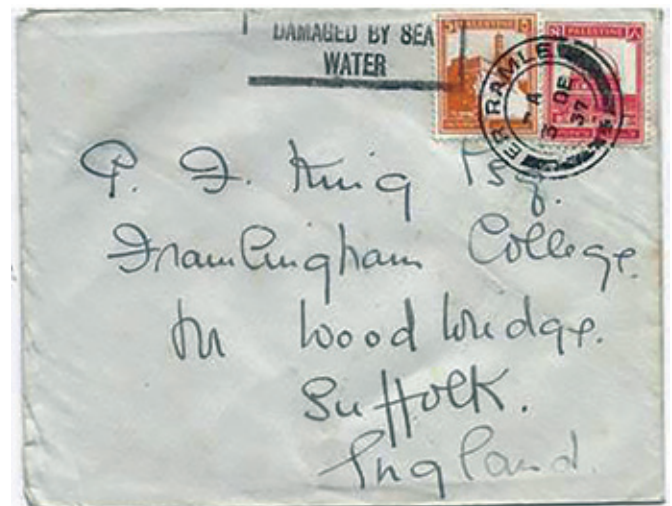 DAMAGED BY SEA
WATER
PALESTINE
PALESTINE
ER RAMLE
A
3 DE
37
P. F. King Esq.
Framlingham College.
Nr Woodbridge.
Suffolk.
England.